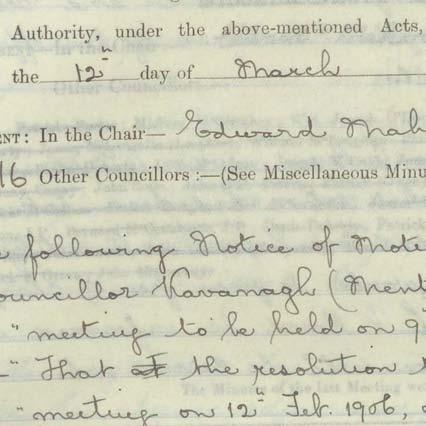 Authority, under the above-mentioned Acts,
the 12th day of March
ENT: In the Chair— Edward Mah
16 Other Councillors :—(See Miscellaneous Minu
e following Notice of Moti
ouncillor Kavanagh (Ment
" meeting to be held on 9
—" That the resolution
" meeting on 12th Feb. 1906,